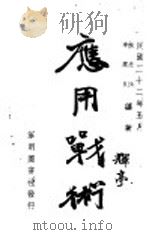 民國二十二年五月
應用戰術
輝亭
軍用圖書社發行